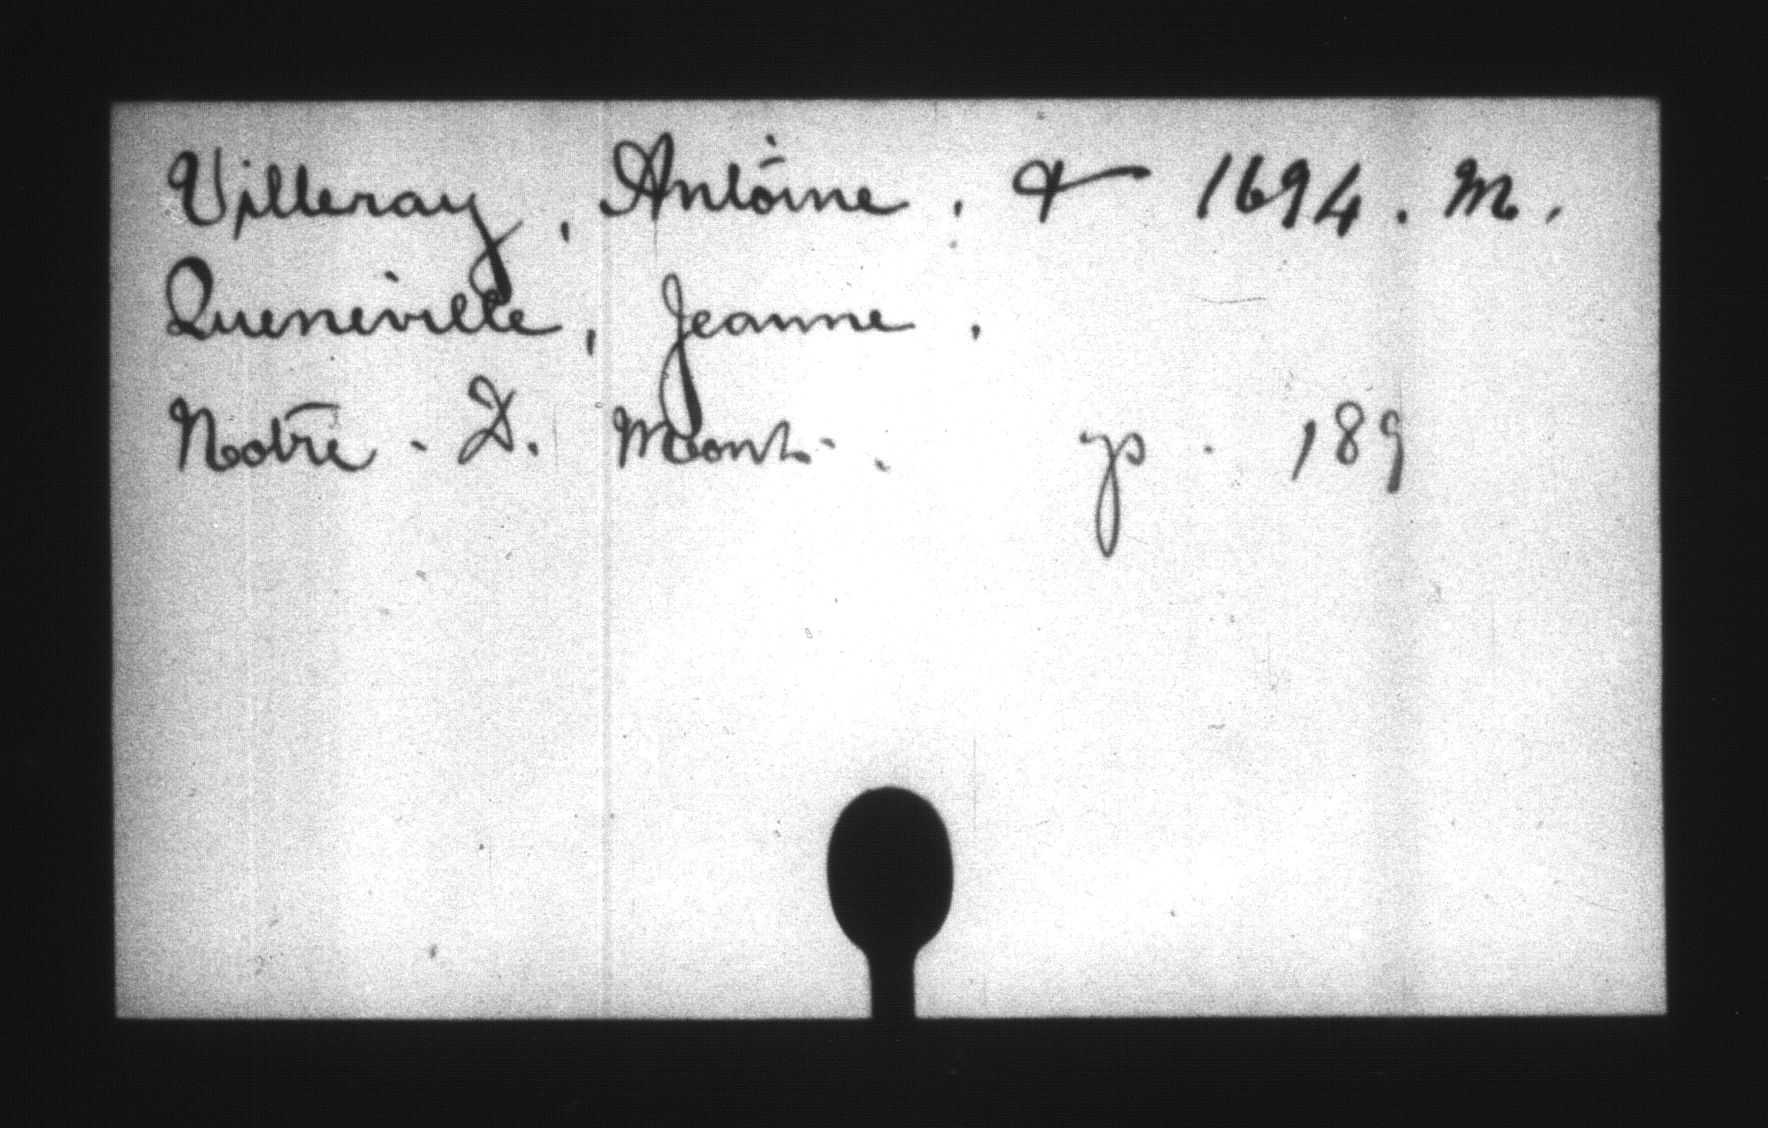 Villeray, Antoine. & 1694. M.
Queneville, Jeanne.
Notre-D. Mont. p. 189